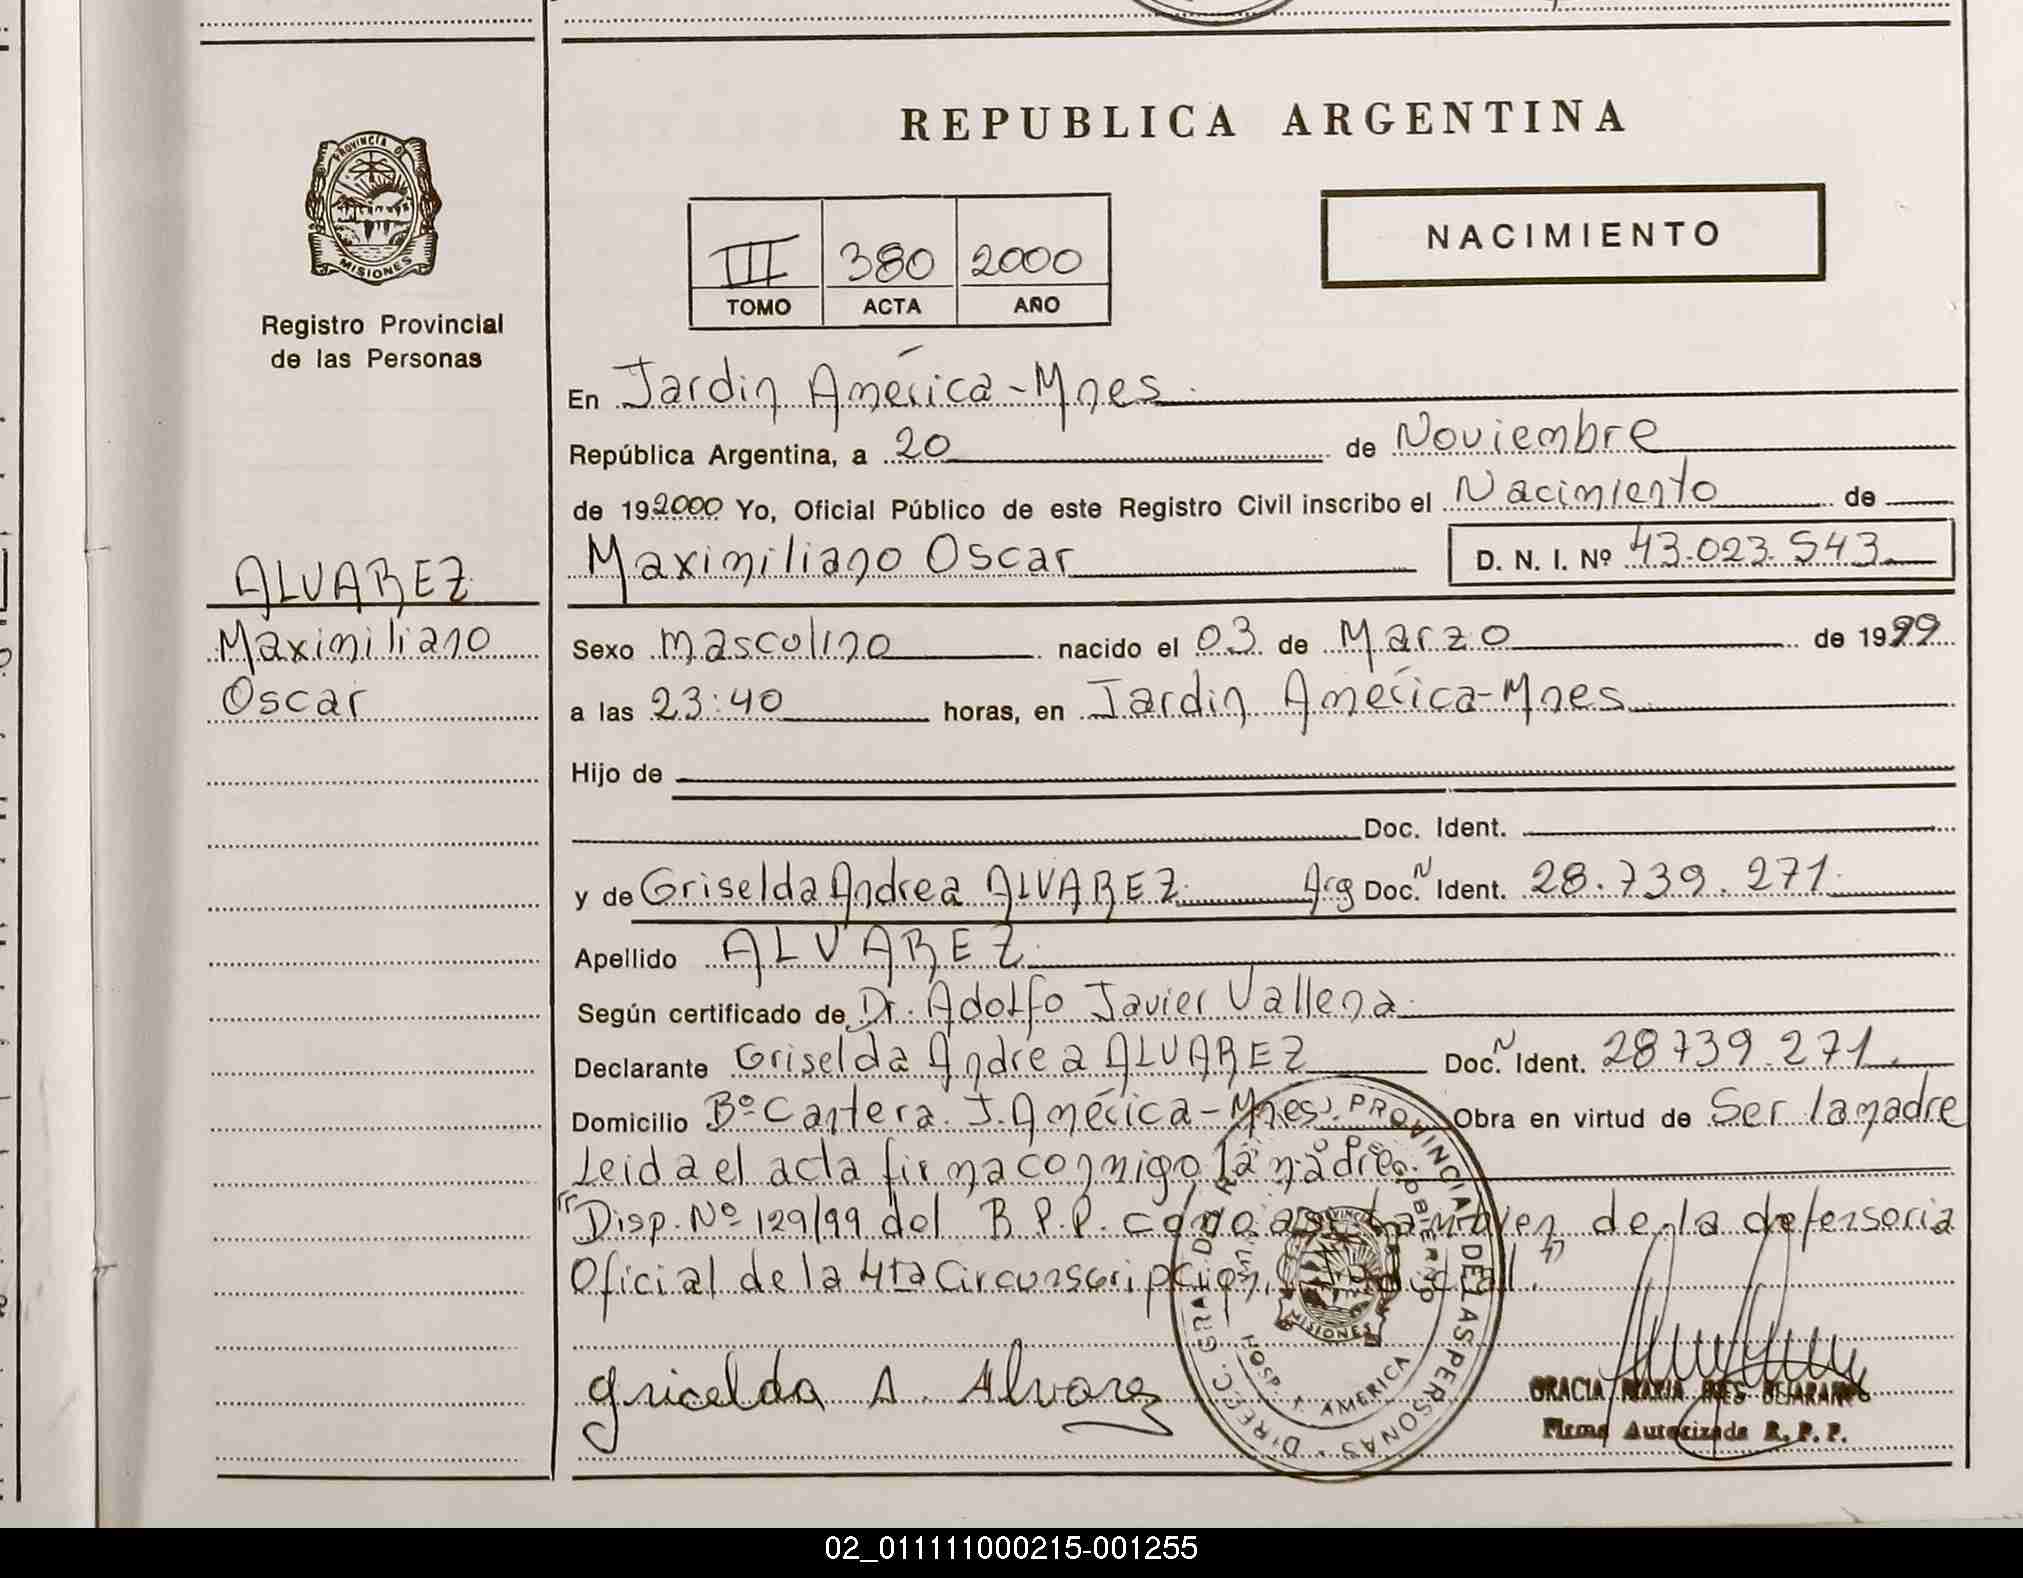 REPUBLICA ARGENTINA
PROVINCIA DE
MISIONES
Registro Provincial
de las Personas
III 380 2000
TOMO ACTA AÑO
NACIMIENTO
En Jardin América-Mnes.
República Argentina, a 20 de Noviembre
de 192000 Yo, Oficial Público de este Registro Civil inscribo el Nacimiento de
Maximiliano Oscar D. N. I. Nº 43.023.543
ALVAREZ
Maximiliano
Oscar
Sexo masculino nacido el 03 de Marzo de 1999
a las 23:40 horas, en Jardin América-Mnes
Hijo de
Doc. Ident.
y de Griselda Andrea ALVAREZ. Arg Doc. N Ident. 28.739.271.
Apellido ALVAREZ.
Según certificado de Dr. Adolfo Javier Vallena.
Declarante Griselda Andrea ALVAREZ Doc. N Ident. 28739.271.
Domicilio Bº Cantera. J. América-Mnes Obra en virtud de Ser la madre
Leida el acta firma conmigo la madre.
"Disp. Nº 129/99 del R.P.P. como asi tambien de la defensoria
Oficial de la 4ta Circunscripcion Judicial."
gricelda A. Alvarez
DIRECC. GRAL. DE REG. PROVINCIAL DE LAS PERSONAS
MIN. DE GOBIERNO
PROVINCIA
MISIONES
HOSP. J. AMERICA
GRACIA MARIA INES BEJARANO
Firma Autorizada R. P. P.
02_011111000215-001255